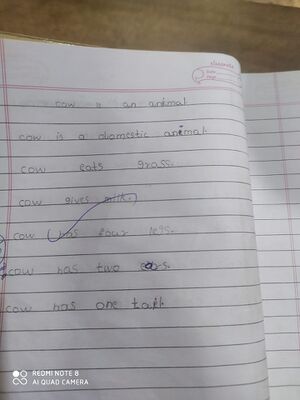 classmate
Date
Page
cow is an animal
cow is a domestic animal.
cow eats grass.
cow gives milk.
cow has four legs.
cow has two ears.
cow has one tail.
REDMI NOTE 8
AI QUAD CAMERA